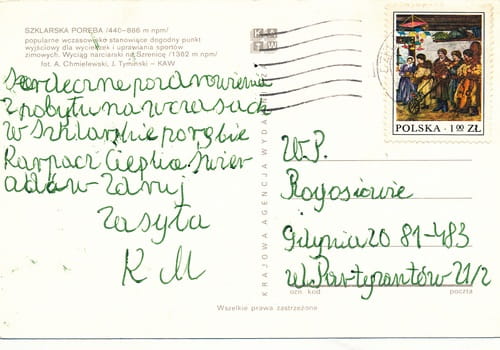 SZKLARSKA PORĘBA /440–886 m npm/
popularne wczasowisko stanowiące dogodny punkt
wyjściowy dla wycieczek i uprawiania sportów
zimowych. Wyciąg narciarski na Szrenicę /1362 m npm/
fot. A. Chmielewski, J. Tymiński — KAW
Serdeczne pozdrowienia
z pobytu na wczasach
w Szklarskie porębie
Karpacz Cieplice Świer
adów Zdruj
zasyła
K M
KAW
KRAJOWA AGENCJA WYDAWNICZA
POLSKA · 1,00 ZŁ
W.P.
Rogosiowie
Gdynia 20 81-483
ul. Partyzantów 21/2
ozn. kod
poczta
Wszelkie prawa zastrzeżone